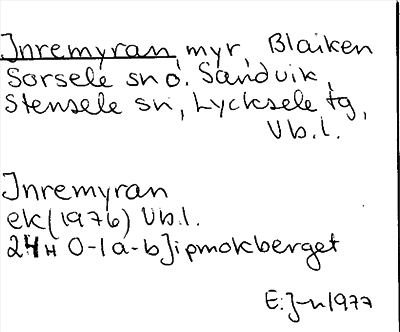 Inremyran, myr, Blaiken
Sorsele sn o. Sandvik,
Stensele sn, Lycksele tg,
Vb.l.
Inremyran
ek (1976) Vb.l.
24H 0-1a-b Jipmokberget
E:J-n 1977